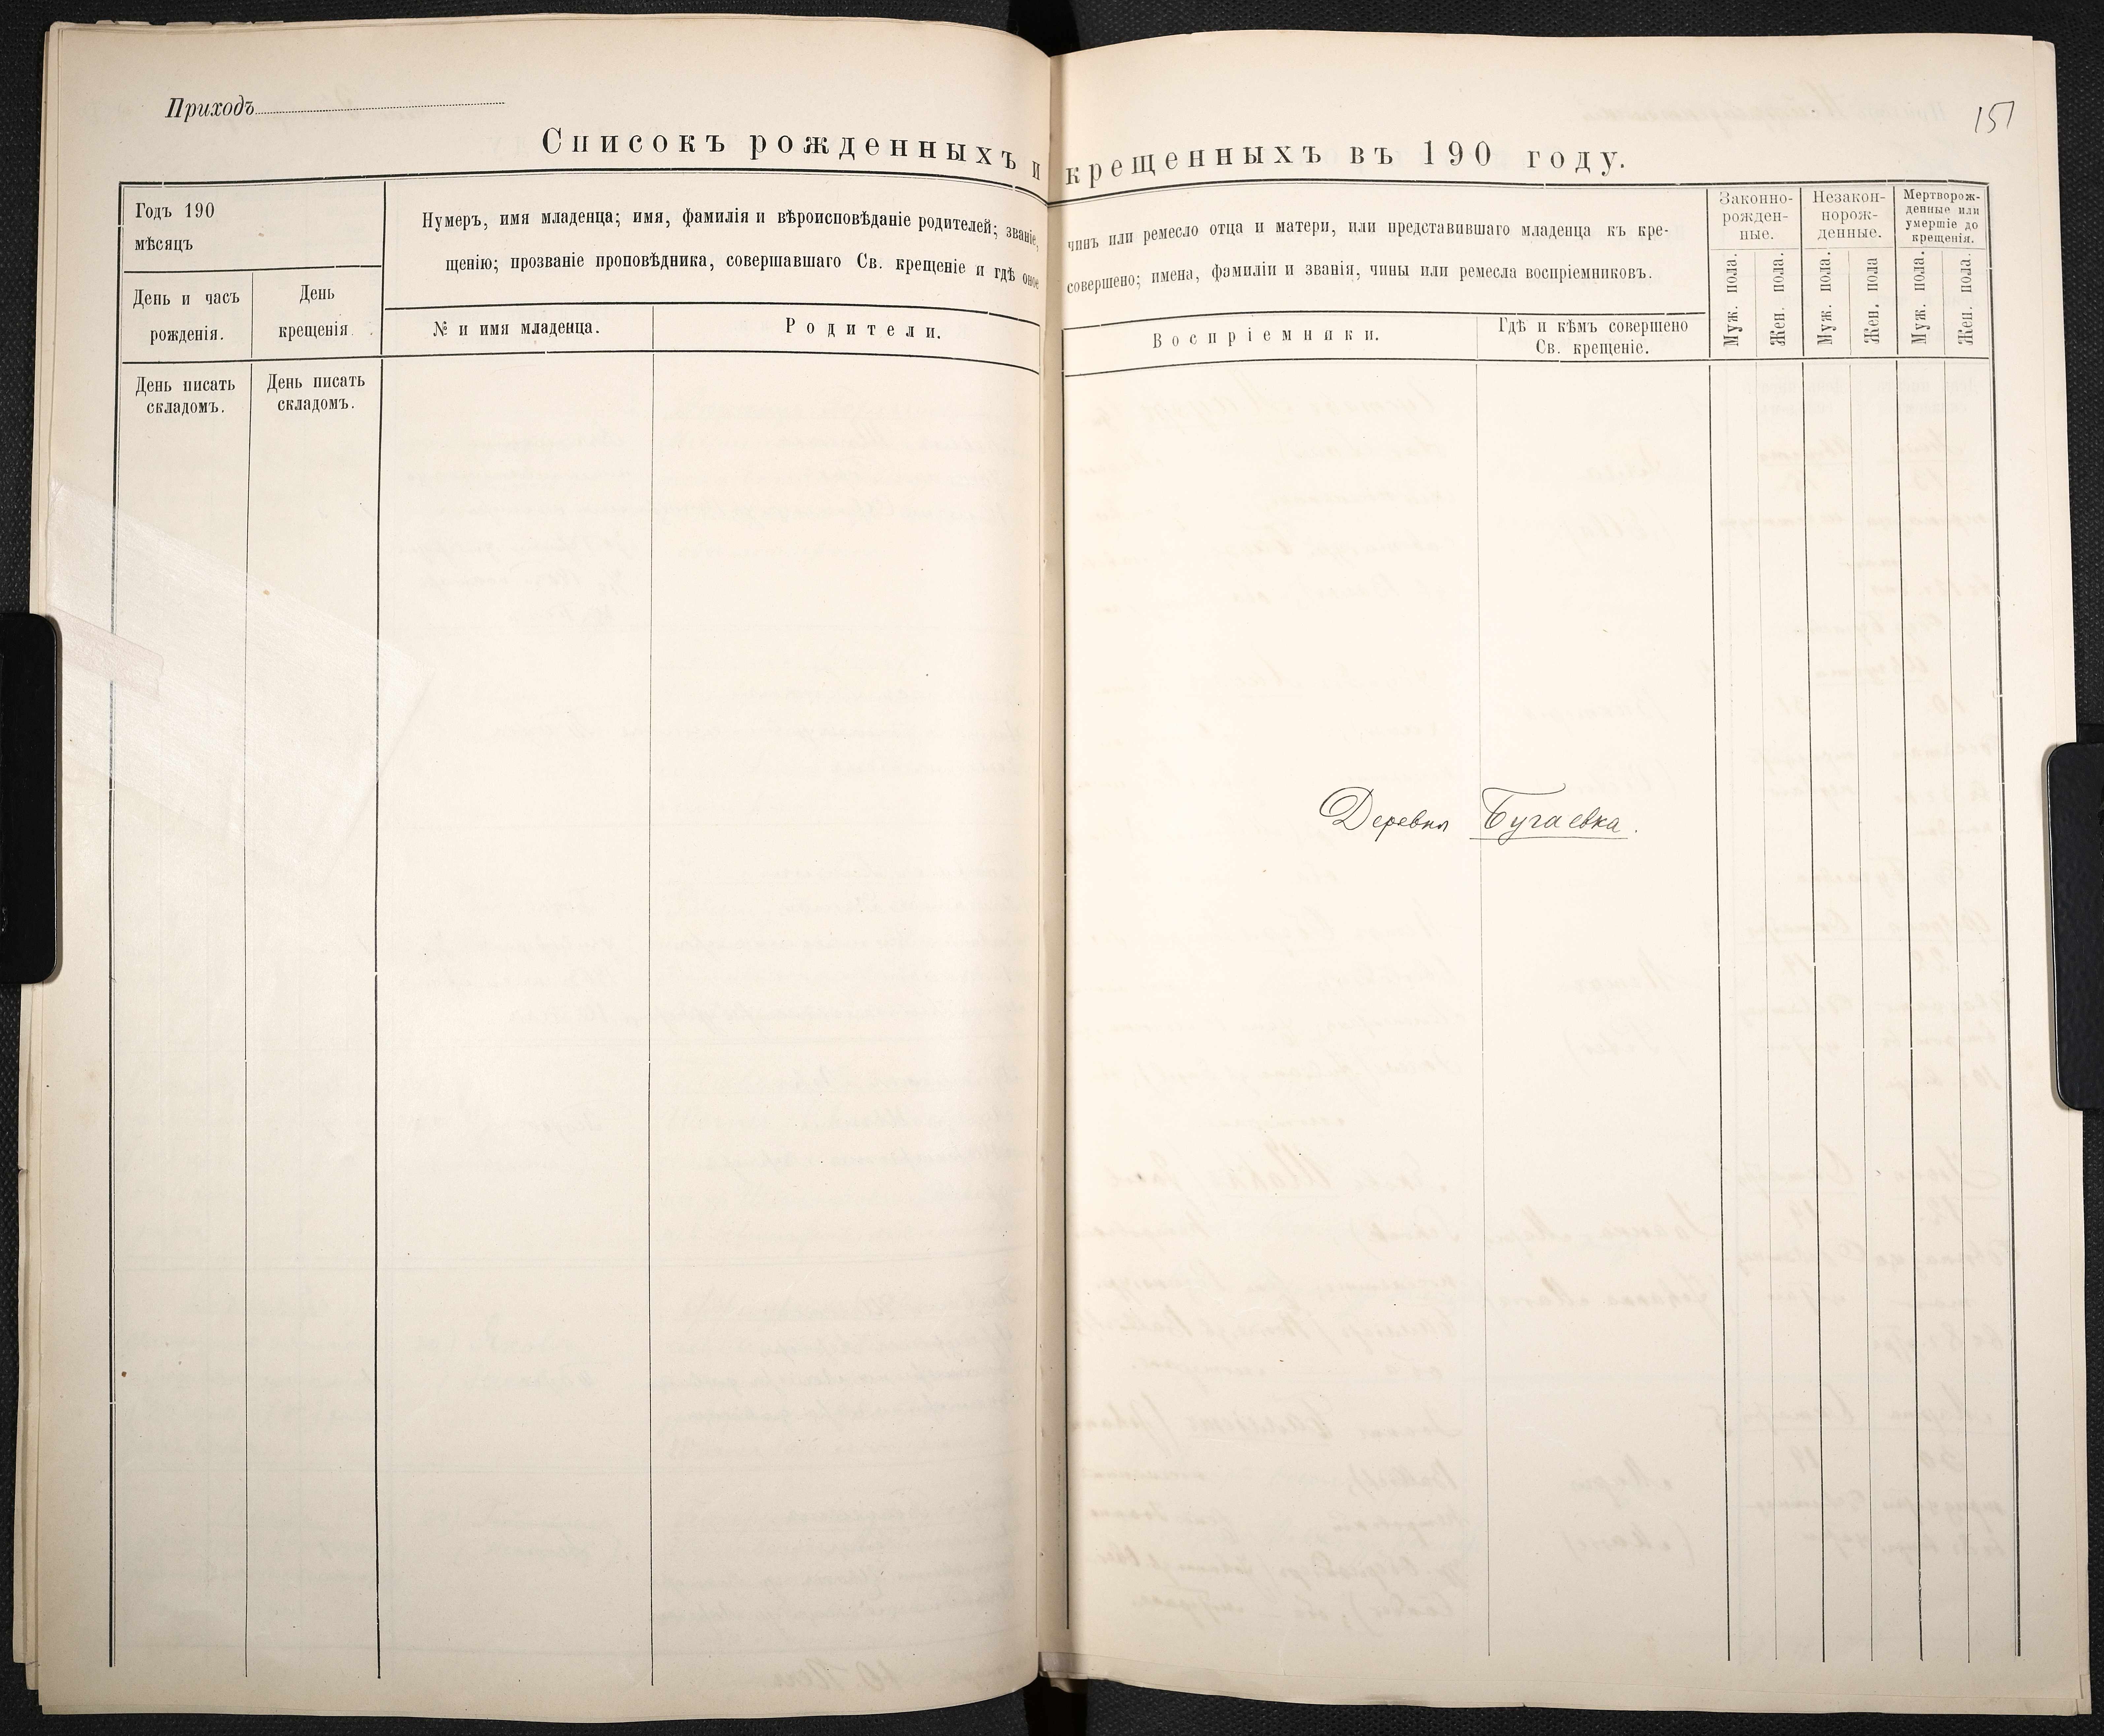 Приходъ
151
Списокъ рожденныхъ и крещенныхъ въ 190 году.
Годъ 190
мѣсяцъ
День и часъ
рожденія.
День
крещенія.
Нумеръ, имя младенца; имя, фамилія и вѣроисповѣданіе родителей; званіе, чинъ или ремесло отца и матери, или представившаго младенца къ кре-
щенію; прозваніе проповѣдника, совершавшаго Св. крещеніе и гдѣ оное совершено; имена, фамиліи и званія, чины или ремесла воспріемниковъ.
№ и имя младенца.
Родители.
Воспріемники.
Гдѣ и кѣмъ совершено
Св. крещеніе.
Законно-
рожден-
ные.
Незакон-
норож-
денные.
Мертворож-
денные или
умершіе до
крещенія.
Муж. пола.
Жен. пола.
Муж. пола.
Жен. пола
Муж. пола.
Жен. пола.
День писать
складомъ.
День писать
складомъ.
Деревня Бугаевка.